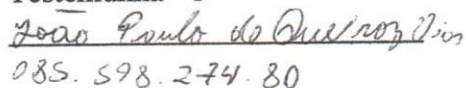 João Paulo de Queiroz Dias
085.598.274.80